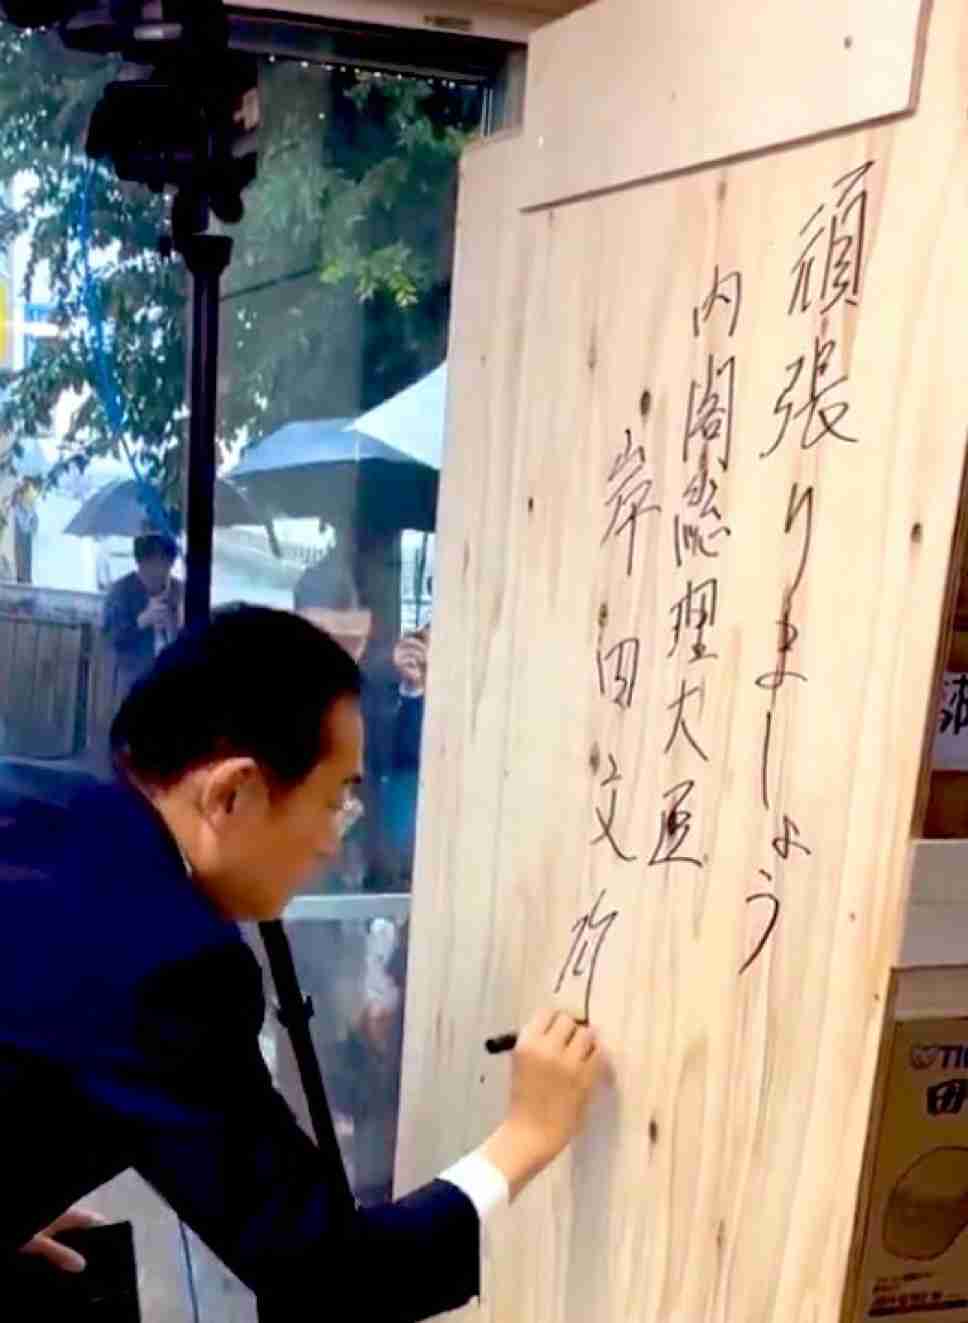 頑張りましょう
内閣総理大臣
岸田文雄
TIG